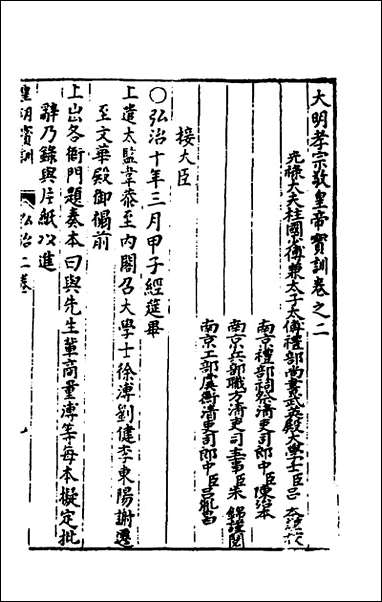 大明孝宗敬皇帝寶訓卷之二
光祿大夫柱國少傅兼太子太傅禮部尚書武英殿大學士臣呂本謹校
南京禮部祠祭清吏司郎中臣陳治本
南京兵部職方清吏司主事臣朱錦謹閱
南京工部虞衡清吏司郎中臣呂胤昌
接大臣
○弘治十年三月甲子經筵畢
上遣太監韋泰至內閣召大學士徐溥劉健李東陽謝遷
至文華殿御榻前
上出各衙門題奏本曰與先生輩商量溥等每本擬定批
辭乃錄與片紙以進
皇明寶訓 弘治二卷